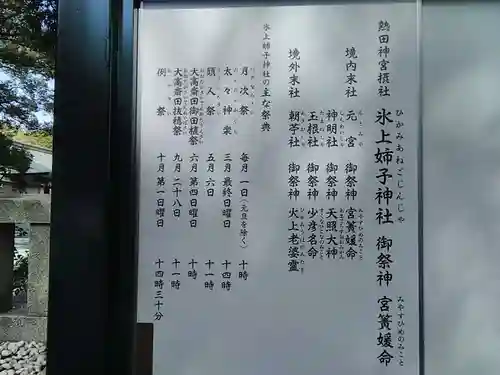 熱田神宮摂社
氷上姉子神社 御祭神 宮簀媛命
ひかみあねごじんじゃ みやすひめのみこと
境内末社 元宮 御祭神 宮簀媛命
神明社 御祭神 天照大神
境外末社 玉根社 御祭神 少彦名命
朝苧社 御祭神 火上老婆霊
氷上姉子神社の主な祭典
月次祭 毎月一日(元旦を除く) 十時
太々神楽 三月最終日曜日 十四時
頭人祭 五月六日 十一時
大高斎田御田植祭 六月第四日曜日 十時
大高斎田抜穂祭 九月二十八日 十一時
例祭 十月第一日曜日 十四時三十分